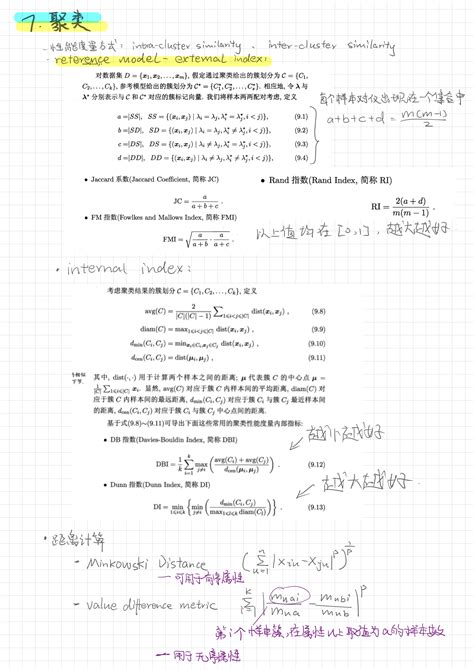 7. 聚类
- 性能度量方式: intra-cluster similarity、inter-cluster similarity
· reference model - external index:
对数据集 D = {x₁, x₂, ..., xₘ}, 假定通过聚类给出的簇划分为 C = {C₁,
C₂, ..., Cₖ}, 参考模型给出的簇划分为 C* = {C₁*, C₂*, ..., Cₛ*}. 相应地, 令 λ 与
λ* 分别表示与 C 和 C* 对应的簇标记向量. 我们将样本两两配对考虑, 定义
a = |SS|, SS = {(xᵢ, xⱼ) | λᵢ = λⱼ, λᵢ* = λⱼ*, i < j)}, (9.1)
b = |SD|, SD = {(xᵢ, xⱼ) | λᵢ = λⱼ, λᵢ* ≠ λⱼ*, i < j)}, (9.2)
c = |DS|, DS = {(xᵢ, xⱼ) | λᵢ ≠ λⱼ, λᵢ* = λⱼ*, i < j)}, (9.3)
d = |DD|, DD = {(xᵢ, xⱼ) | λᵢ ≠ λⱼ, λᵢ* ≠ λⱼ*, i < j)}, (9.4)
每个样本对仅出现在一个集合中
a+b+c+d = m(m-1)/2
• Jaccard 系数(Jaccard Coefficient, 简称 JC)
JC = a/(a + b + c) .
• FM 指数(Fowlkes and Mallows Index, 简称 FMI)
FMI = √(a/(a + b) · a/(a + c)) .
• Rand 指数(Rand Index, 简称 RI)
RI = 2(a + d)/m(m − 1) .
以上值均在 [0,1], 越大越好
· internal index:
考虑聚类结果的簇划分 C = {C₁, C₂, ..., Cₖ}, 定义
avg(C) = 2/(|C|(|C| − 1)) ∑1≤i<j≤|C| dist(xᵢ, xⱼ) , (9.8)
diam(C) = max1≤i<j≤|C| dist(xᵢ, xⱼ) , (9.9)
dmin(Cᵢ, Cⱼ) = minxᵢ∈Cᵢ,xⱼ∈Cⱼ dist(xᵢ, xⱼ) , (9.10)
dcen(Cᵢ, Cⱼ) = dist(μᵢ, μⱼ) , (9.11)
其中, dist(·, ·) 用于计算两个样本之间的距离; μ 代表簇 C 的中心点 μ =
1/|C| ∑1≤i≤|C| xᵢ. 显然, avg(C) 对应于簇 C 内样本间的平均距离, diam(C) 对
应于簇 C 内样本间的最远距离, dmin(Cᵢ, Cⱼ) 对应于簇 Cᵢ 与簇 Cⱼ 最近样本间
的距离, dcen(Cᵢ, Cⱼ) 对应于簇 Cᵢ 与簇 Cⱼ 中心点间的距离.
基于式(9.8)~(9.11)可导出下面这些常用的聚类性能度量内部指标:
越小越好
• DB 指数(Davies-Bouldin Index, 简称 DBI)
DBI = 1/k ∑ᵢ₌₁ᵏ maxj≠i ((avg(Cᵢ) + avg(Cⱼ))/dcen(μᵢ, μⱼ)) . (9.12)
越大越好
• Dunn 指数(Dunn Index, 简称 DI)
DI = min1≤i≤k {minj≠i (dmin(Cᵢ, Cⱼ)/max1≤l≤k diam(Cₗ))} . (9.13)
· 距离计算
- Minkowski Distance (∑ᵤ₌₁ⁿ |xiu - xju|^p)^(1/p)
— 可用于有序属性
- value difference metric ∑ᵢ₌₁ᵏ |mu,a,i/mu,a - mu,b,i/mu,b|^p
第i个样本簇,在属性u上取值为a的样本数
— 用于无序属性